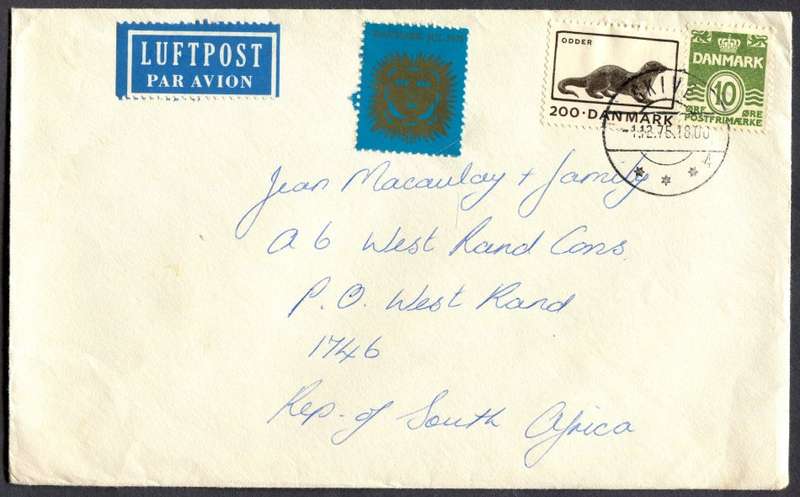 LUFTPOST
PAR AVION
ODDER
200·DANMARK
DANMARK
10
ØRE ØRE
POSTFRIMÆRKE
-1.12.75.18.00
Jean Macaulay + family
A 6 West Rand Cons.
P.O. West Rand
1746
Rep. of South Africa